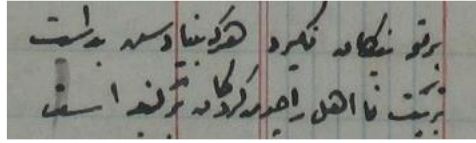 پرتو نیکان نگیرد هرکه بنیادش بد است
تربیت نا اهل را چون گردکان بر گنبد است